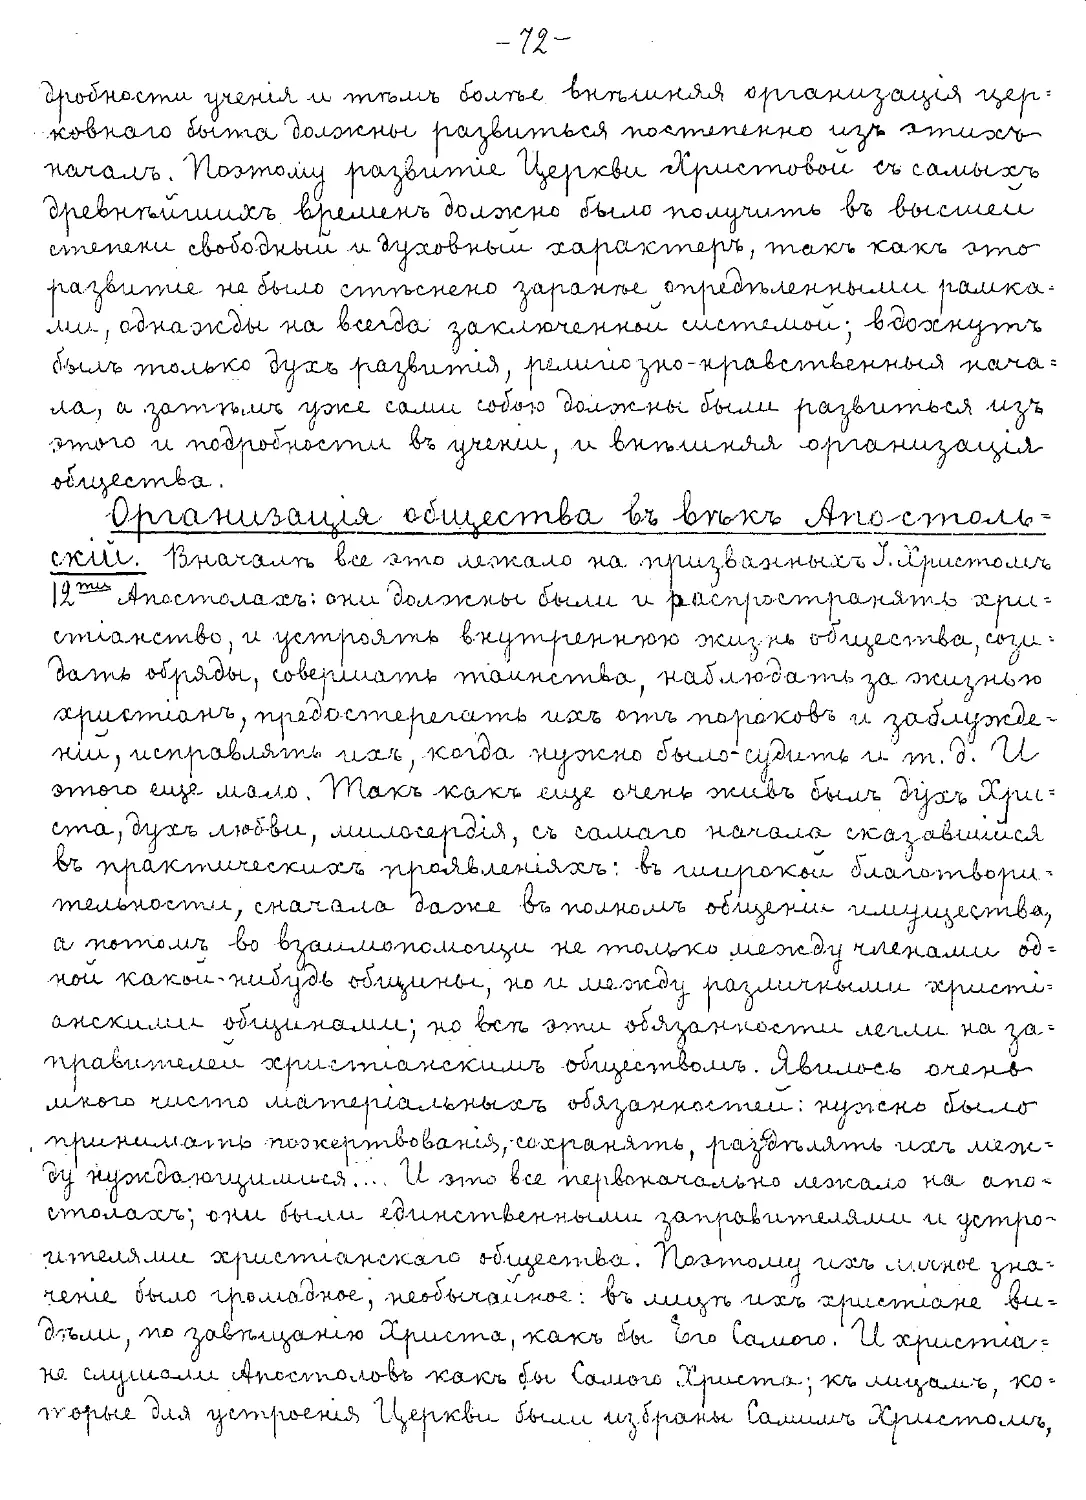 -72-
дробности ученія и тѣмъ болѣе внѣшняя организація цер=
ковнаго быта должны развиться постепенно изъ этихъ
началъ. Поэтому развитіе Церкви Христовой съ самыхъ
древнѣйшихъ временъ должно было получить въ высшей
степени свободный и духовный характеръ, такъ какъ это
развитіе не было стѣснено заранѣе опредѣленными рамка=
ми, однажды на всегда заключенной системой; вдохнутъ
былъ только духъ развитія, религіозно-нравственныя нача=
ла, а затѣмъ уже сами собою должны были развиться изъ
этого и подробности въ ученіи, и внѣшняя организація
общества.
Организація общества въ вѣкъ Апостоль=
скій. Вначалѣ все это лежало на призванныхъ І. Христомъ
12ти Апостолахъ: они должны были и распространять хри=
стіанство, и устроять внутреннюю жизнь общества, сози=
дать обряды, совершать таинства, наблюдать за жизнью
христіанъ, предостерегать ихъ отъ пороковъ и заблужде=
ній, исправлять ихъ, когда нужно было-судить и т. д. И
этого еще мало. Такъ какъ еще очень живъ былъ духъ Хри=
ста, духъ любви, милосердія, съ самаго начала сказавшійся
въ практическихъ проявленіяхъ: въ широкой благотвори=
тельности, сначала даже въ полномъ общеніи имущества,
а потомъ во взаимопомощи не только между членами од=
ной какой-нибудь общины, но и между различными христі=
анскими общинами; но всѣ эти обязанности легли на за=
правителей христіанскимъ обществомъ. Явилось очень
много чисто матеріальныхъ обязанностей: нужно было
принимать пожертвованія, сохранять, раздѣлять ихъ меж=
ду нуждающимися.... И это все первоначально лежало на апо=
столахъ; они были единственными заправителями и устро=
ителями христіанскаго общества. Поэтому ихъ личное зна=
ченіе было громадное, необычайное: въ лицѣ ихъ христіане ви=
дѣли, по завѣщанію Христа, какъ бы Его Самого. И христіа=
не слушали Апостоловъ какъ бы Самого Христа; къ лицамъ, ко=
торые для устроенія Церкви были избраны Самимъ Христомъ,